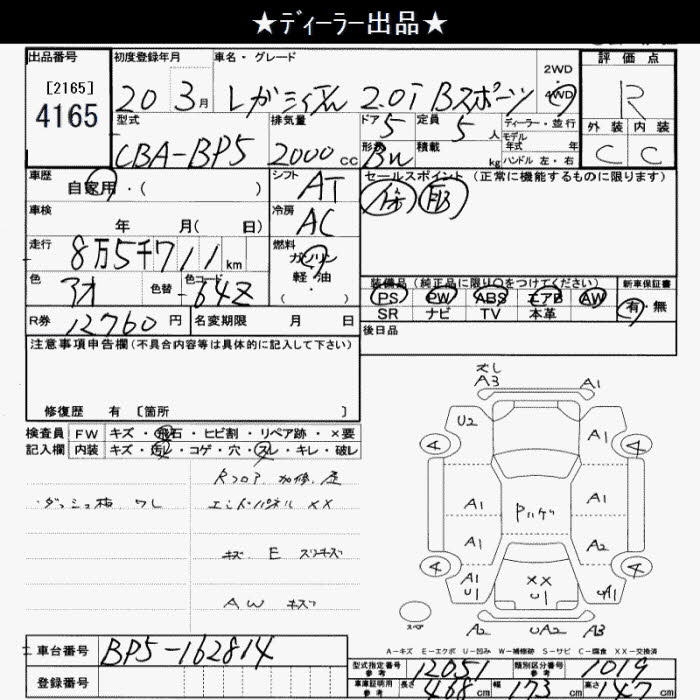 ★ディーラー出品★
出品番号 初度登録年月 車名・グレード 2WD 評価点
[2165] 4165 20 3月 レガシィワゴン 2.0i Bスポーツ 4WD R
型式 排気量 ドア 定員 ディーラー・並行 外装 内装
CBA-BP5 2000cc 5 5人 モデル年式 年 C C
形状 積載 kg ハンドル 左・右
車歴 シフト セールスポイント (正常に機能するものに限ります)
自家用・( ) AT
車検 冷房
年 月( 日) AC
走行 燃料
8万5千711km ガソリン
軽・油
色 色替 色コード 装備品(純正品に限り〇をつけてください) 新車保証書
アオ 64Z PS PW ABS エアB AW 有・無
SR ナビ TV 本革
R券 12760円 名変期限 月 日 後日品
注意事項申告欄(不具合内容等は具体的に記入して下さい)
修復歴 有 〔箇所 〕
検査員 FW キズ・飛石・ヒビ割・リペア跡・×要
記入欄 内装 キズ・汚レ・コゲ・穴・スレ・キレ・破レ
Rフロア 加修 歪
・ダッシュ板 ワレ エンドパネル ××
キズ E スリキズ
AW キズ
A3 A1
U2 A1
4 4
A1 A1
A1 A2
4 4
A1 U1 ×× U1 A1
スペア A2 UA2 A3
A-キズ E-エクボ U-凹み W-補修跡 S-サビ C-腐食 XX-交換済
車台番号 BP5-162814
型式指定番号 参考 12051 類別区分番号 参考 1019
登録番号
車庫証明用 参考 長さ 468cm 幅 173cm 高さ 147cm